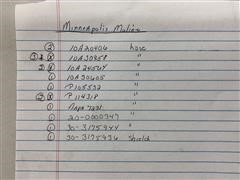 Minneapolis Moline
② 10A20406 hose
③ 2 8 10A30858 "
2 4 10A24564 "
① 10A30605 "
① P105532 "
② 8 P114318 "
① Napa 7681 "
① 20-0000347 "
① 30-3175944 "
① 30-3175436 Shield